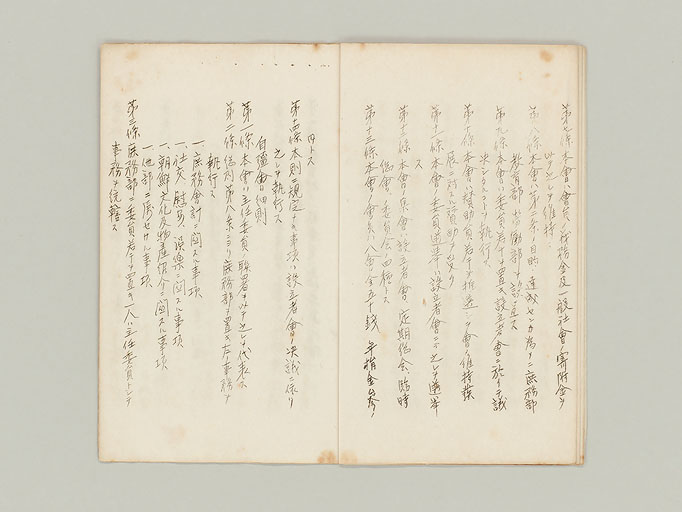 第七條 本會ハ會員ノ義務金及一般社會ノ寄附金ヲ
以テ之レヲ維持ス
第八條 本會ハ第二條ノ目的ヲ達成センカ為メニ庶務部
教育部、労働部ヲ設置ス
第九條 本會ハ委員若干ヲ置キ設立者會ニ於イテ議
決シタコトヲ執行ス
第十條 本會ハ賛助員若干ヲ推選シテ會ノ維持發
展ニ対スル賛助ヲ受ク
第十一條 本會ノ委員選挙ハ設立者會ニテ之レヲ選挙
ス
第十二條 本會ノ集會ハ設立者會、定期総會、臨時
総會、委員會ノ四種トス
第十三條 本會ノ會員ハ入會金五十銭 年捐金参
円トス
第十四條 本則ニ規定ナキ事項ハ設立者會ノ決議ニ依リ
之レヲ執行ス
自彊會細則
第一條 本會ハ主任委員ノ聯署ヲ以テ之レヲ代表ス
第二條 總則第八条ニヨリ庶務部ヲ置キ左ノ事務ヲ
執行ス
一、庶務會計ニ関スル事項
一、社交、慰安、娯楽ニ関スル事項
一、朝鮮文化及物産紹介ニ関スル事項
一、他部ニ属セサル事項
第三條 庶務部ニ委員若干ヲ置キ一人ハ主任委員トシテ
事務ヲ統轄ス